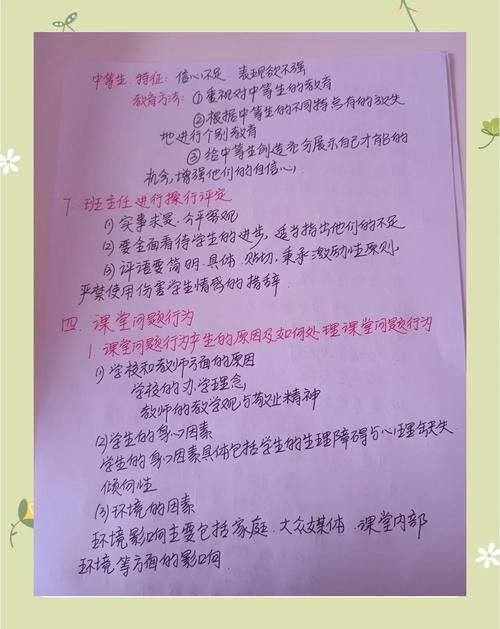 中等生 特征: 信心不足 表现欲不强
教育方法: ①重视对中等生的教育
②根据中等生的不同特点有的放矢
地进行个别教育
③给中等生创造充分展示自己才能的
机会,增强他们的自信心.
7. 班主任进行操行评定
(1)实事求是、公平客观
(2)要全面看待学生的进步, 适当指出他们的不足
(3)评语要简明、具体、贴切, 秉承激励性原则,
严禁使用伤害学生情感的措辞.
四、课堂问题行为
1. 课堂问题行为产生的原因及如何处理课堂问题行为
(1)学校和教师方面的原因
学校的办学理念,
教师的教学观与敬业精神
(2)学生的身心因素
学生的身心因素具体包括学生的生理障碍与心理缺失
倾向性
(3)环境的因素
环境影响主要包括家庭、大众媒体、课堂内部
环境等方面的影响.